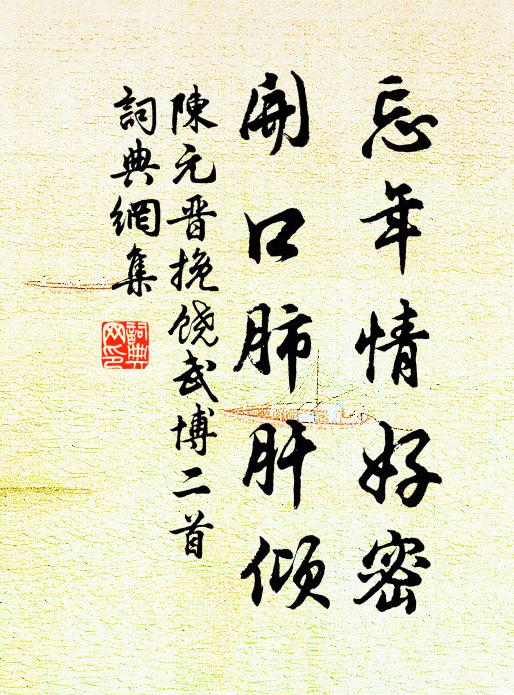 忘年情好密
開口肺肝傾
陳元晋挽饒武博二首
詞典網集
詞典
网印